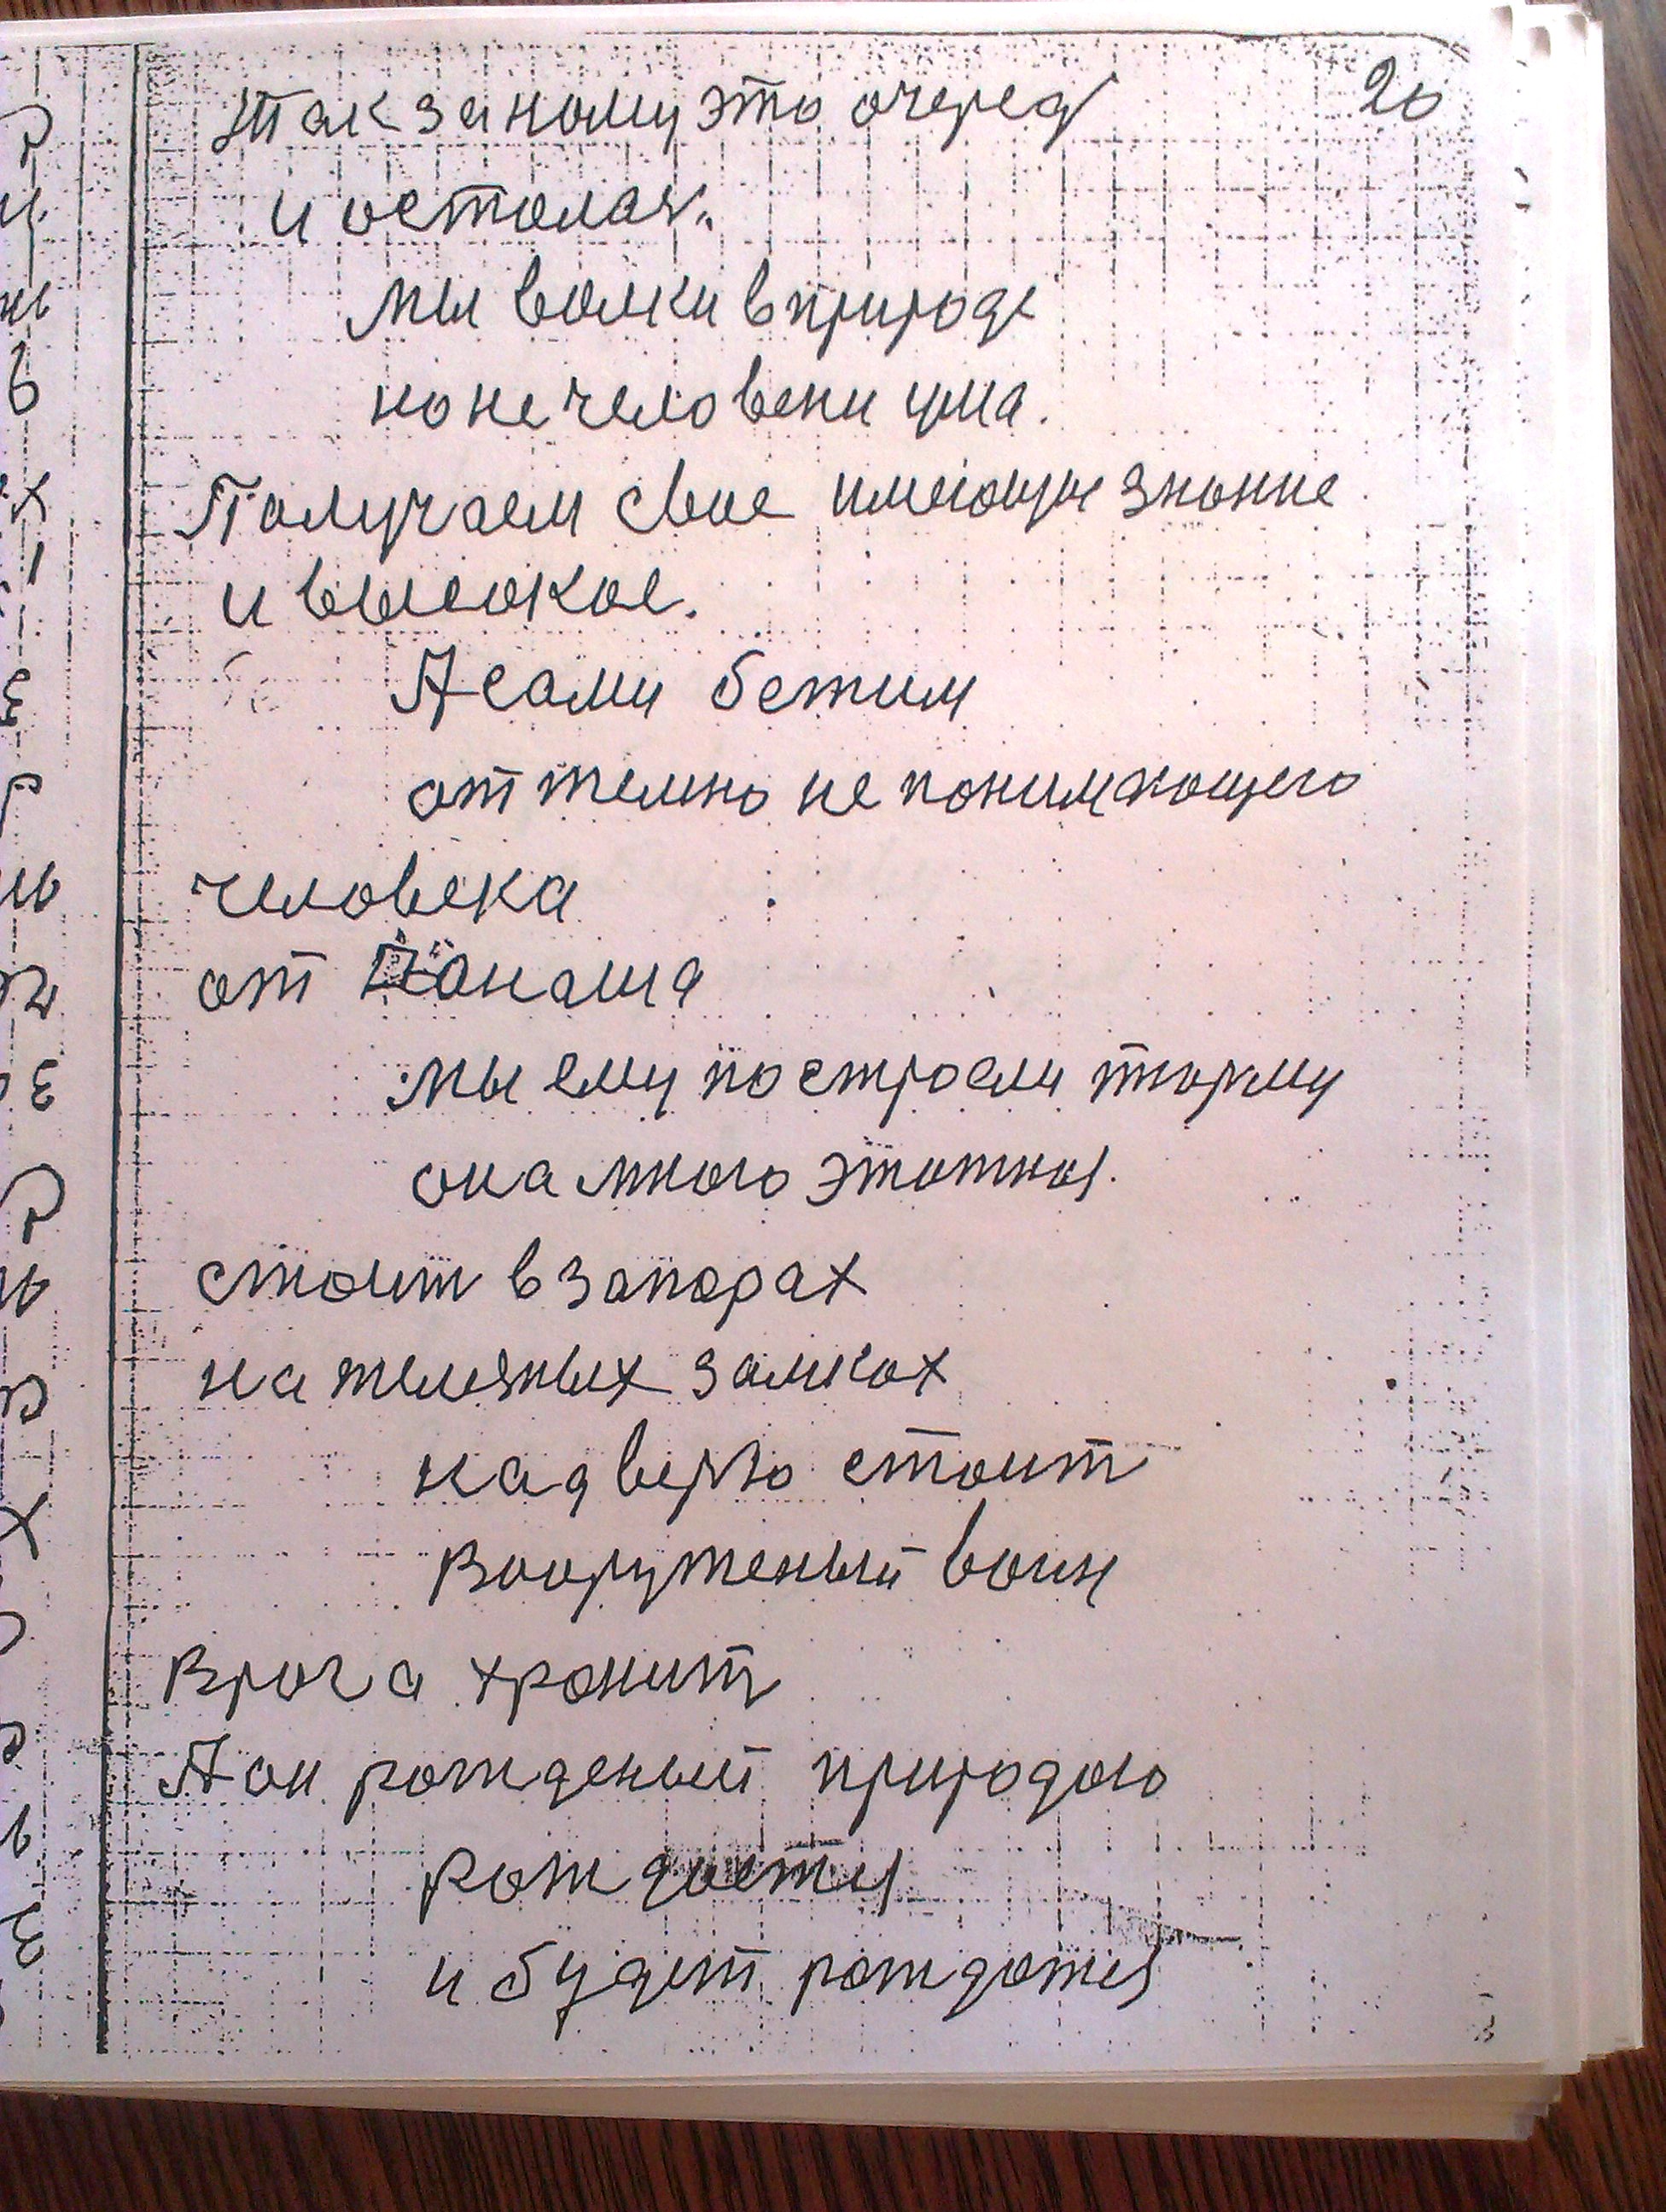 20
Так за кому это очеред
и осталая.
мы волки в природе
но не человеки ума.
Получаем свое имеющее знание
и высокое.
А сами бежим
от темно не понимающего
человека
от
мы ему построели тюрму
она много этотная.
стоит в запорах
на железных замках
над верью стоит
вооруженый воин
врага хронит
А он рожденый природою
рождается
и будет рождатся